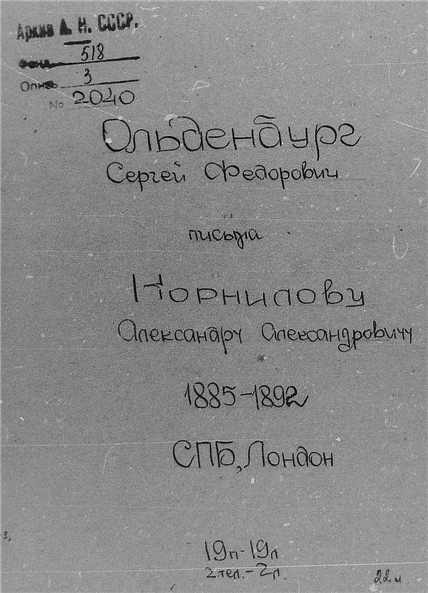 Архив А. Н. СССР.
Фонд 518
Опись 3
№ 2040
Ольденбург
Сергей Федорович
письма
Корнилову
Александру Александровичу
1885-1892
СПБ, Лондон
19п-19л
2тел.-2л.
22л